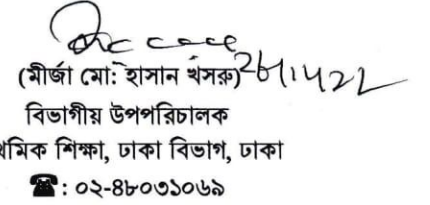 (মীর্জা মো: হাসান খসরু)
বিভাগীয় উপপরিচালক
থমিক শিক্ষা, ঢাকা বিভাগ, ঢাকা
☎: ০২-৪৮০৩১০৬৯